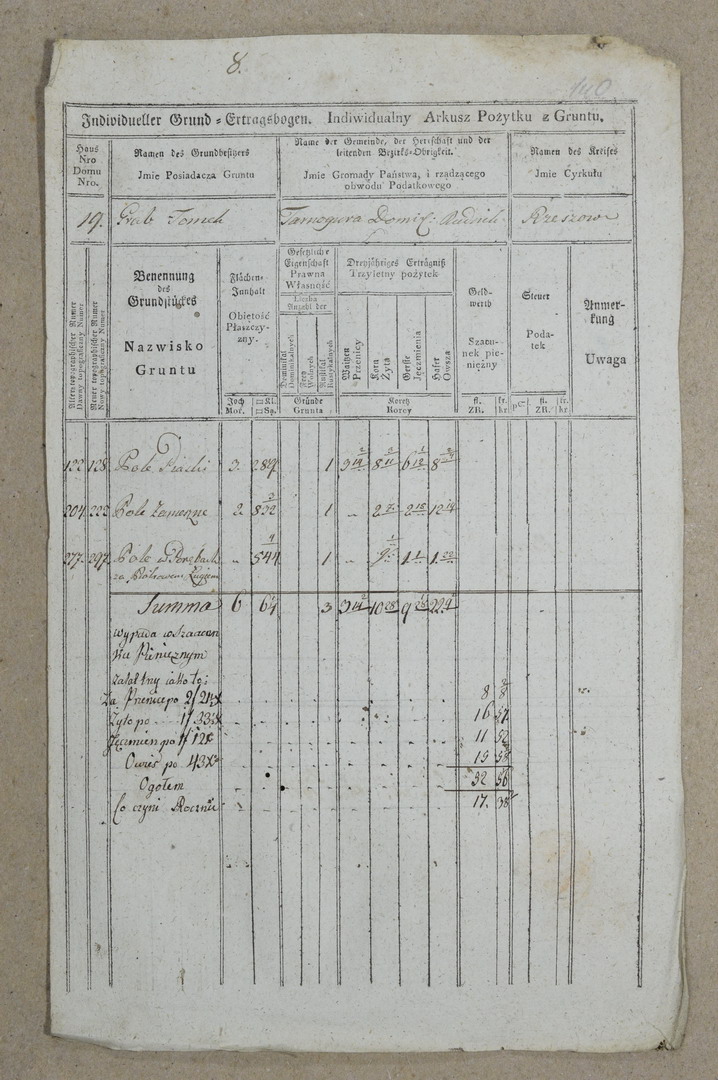 8.
140
Individueller Grund = Ertragsbogen. Indiwidualny Arkusz Pożytku z Gruntu.
Haus
Nro
Domu
Nro.
Namen des Grundbesitzers
Jmie Posiadacza Gruntu
Name der Gemeinde, der Herrschaft und der
leitenden Bezirks-Obrigkeit.
Jmie Gromady Państwa, i rządzącego
obwodu Podatkowego
Namen des Kreises
Jmie Cyrkułu
19. Grab Tomek Tarnogura Rudnik Rzeszow
Alter topographischer Numer
Dawny topograficzny Numer
Neuer topographischer Numer
Nowy topograficzny Numer
Benennung
des
Grundstückes
Nazwisko
Gruntu
Flächen-
Innhalt
Obiętość
Płaszczy-
zny.
Joch
Mor.
□Kl.
□Sq.
Gesetzliche
Eigenschaft
Prawna
Własność
Liczba
Anzahl der
Dominikal
Dominikalnych
Frey
Wolnych
Rustikal
Rustykalnych
Gründe
Grunta
Dreyjähriges Erträgniß
Trzyletny pożytek
Waitzen
Przenicy
Korn
Żyta
Gerste
Jęczmienia
Hafer
Owsa
Koretz
Korcy
Geld-
werth
Szacu-
nek pie-
niężny
fl.
ZR.
kr.
kr
Steuer
Poda-
tek
pC
fl.
ZR.
kr.
kr
Anmer-
kung
Uwaga
122 128 Pole Piachi 3. 284 1 3 14 8 11 6 12 8
204 222 Pole 2 832 1 „ 2 7 2 15 12
277. 297 Pole w Porębach „ 544 1 „ 1 1 1 22
za Ługiem
Summa 6 64 3 3 14 10 28 9 28 22
wypada w Szacun
ku Pieniężnym
Za Przenice po 2/24x 8 8
Zyto po 1/33 x 16 57
Jęczmien po 1/12x 11 52
Owies po 43x 15 58
Ogołem 52 56
Co czyni Rocznie 17. 38